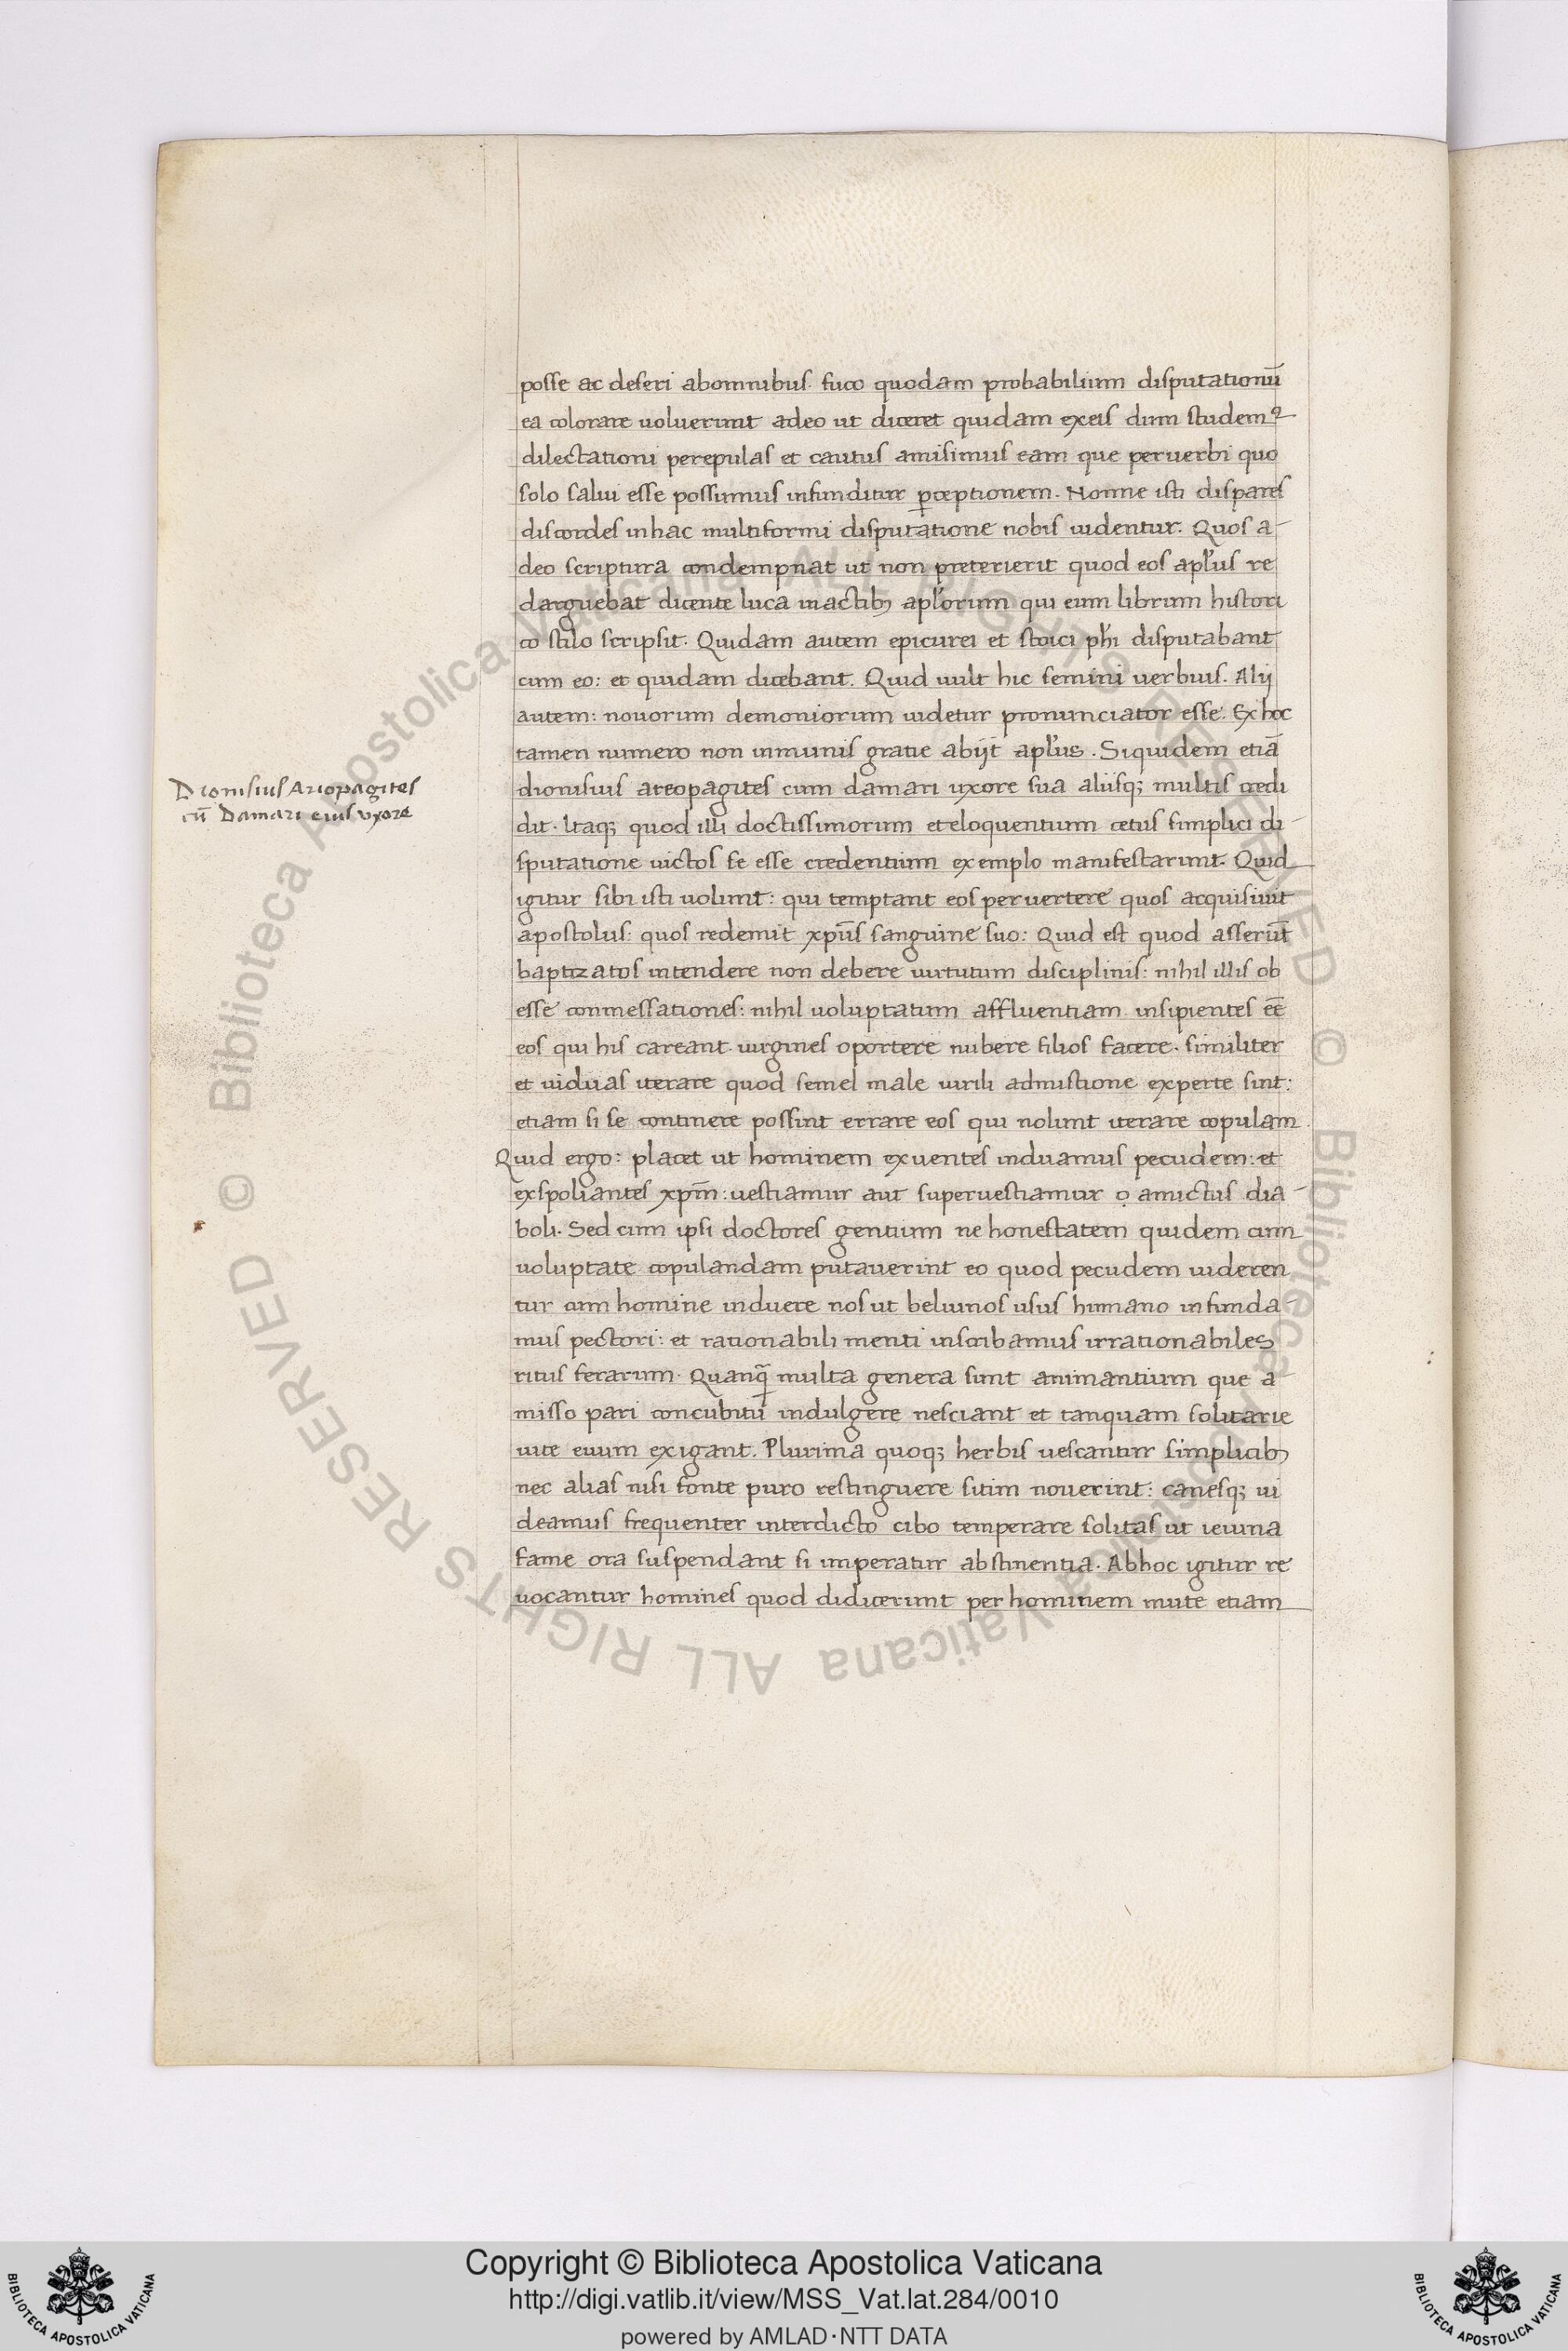 posse ac deseri abomnibus. fuco quodam probabilium disputationū
ea colorare uoluerunt adeo ut diceret quidam exeis dum studemꝰ
dilectationi perepulas et cautus amisimus eam que peruerbi quo
solo salui esse possumus infunditur ꝑceptionem. Nonne isti dispares
discordes inhac multiformi disputatione nobis uidentur. Quos a-
deo scriptura condempnat ut non preterierit quod eos apl'us re
darguebat dicente luca inactibꝫ apl'orum qui eum librum histori
co stilo scripsit. Quidam autem epicurei et stoici ph'i disputabant
cum eo: et quidam dicebant. Quid uult hic semini uerbius. Alij
autem: nouorum demoniorum uidetur pronunciator esse. Ex hoc
tamen numero non inmunis gratie abijt apl'us. Siquidem etiā
Dionisius Ariopagites
cū Damari eius uxore
dionisius areopagites cum damari uxore sua aliisqꝫ multis credi
dit. Itaqꝫ quod illi doctissimorum eteloquentium cetus simplici di-
sputatione uictos se esse credentium exemplo manifestarunt. Quid
igitur sibi isti uolunt: qui temptant eos peruertere quos acquisiuit
apostolus: quos redemit xp̄us sanguine suo: Quid est quod asserūt
baptizatos intendere non debere uirtutum disciplinis: nihil illis ob
esse conmessationes: nihil uoluptatum affluentiam insipientes eē
eos qui his careant. uirgines oportere nubere filios facere. similiter
et uiduas iterare quod semel male uirili admistione experte sint:
etiam si se continere possint errare eos qui nolunt iterare copulam.
Quid ergo: placet ut hominem exuentes induamus pecudem: et
exspoliantes xp̄m: uestiamur aut superuestiamur ọ amictus dia-
boli. Sed cum ipsi doctores gentium ne honestatem quidem cum
uoluptate copulandam putauerint eo quod pecudem uideren
tur cum homine induere nos ut beluinos usus humano infunda-
mus pectori: et rationabili menti inscribamus irrationabiles
ritus ferarum. Quanqꝫ̄ multa genera sunt animantium que a-
misso pari concubitū indulgere nesciant et tanquam solitarie
uite euum exigant. Plurima quoqꝫ herbis uescantur simplicibꝫ
nec alias nisi fonte puro restinguere sitim nouerint: canesqꝫ ui
deamus frequenter interdicto cibo temperare solitas ut ieiuna
fame ora suspendant si imperatur abstinentia. Abhoc igitur re
uocantur homines quod didicerunt per hominem mute etiam
Copyright © Biblioteca Apostolica Vaticana
http://digi.vatlib.it/view/MSS_Vat.lat.284/0010
powered by AMLAD·NTT DATA
BIBLIOTECA APOSTOLICA VATICANA
BIBLIOTECA APOSTOLICA VATICANA
© Biblioteca Apostolica Vaticana ALL RIGHTS RESERVED
© Biblioteca Apostolica Vaticana ALL RIGHTS RESERVED